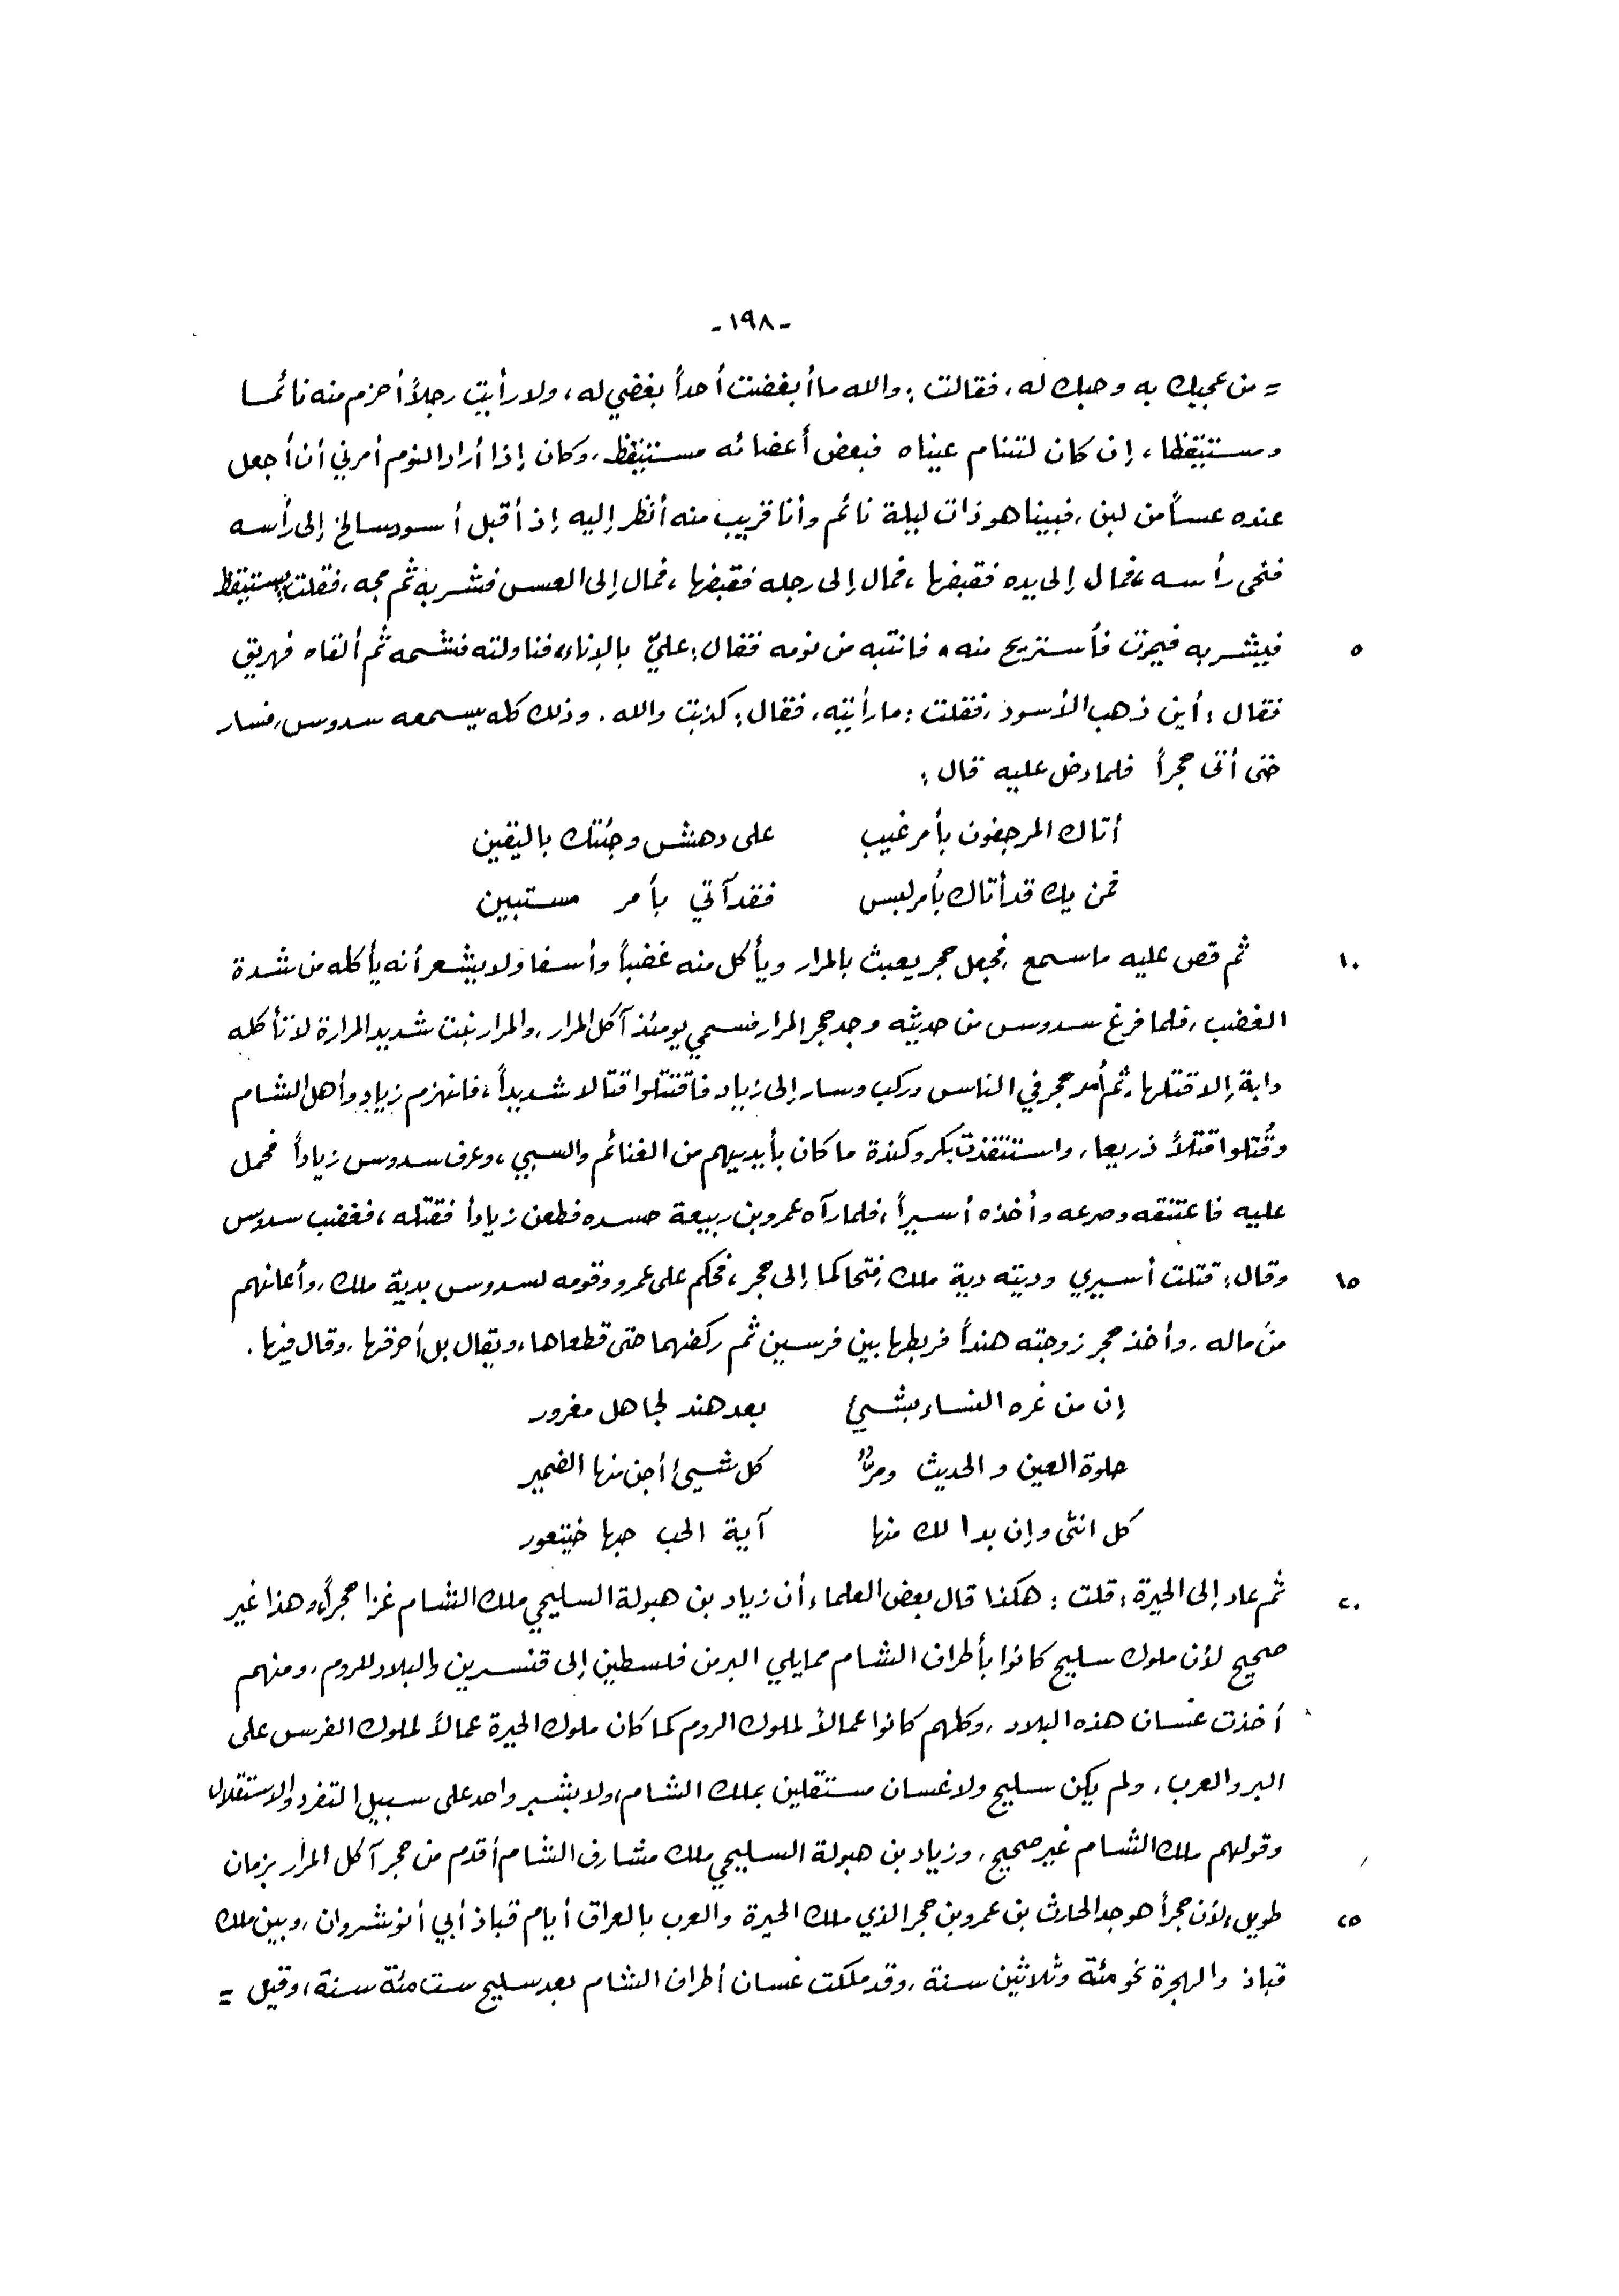 -١٩٨-
= من عجبك به وحبك له، فقالت: والله ما أبغضت أحداً بغضي له، ولا رأيت رجلاً أحزم منه نائما
ومستيقظا، إن كان لتنام عيناه فبعض أعضائه مستيقظ، وكان إذا أراد النوم أمرني أن أجعل
عنده عساً من لبن، فبينا هو ذات ليلة نائم وأنا قريب منه أنظر إليه إذ أقبل أسود سالخ إلى رأسه
فنحى رأسه، فمال إلى يده فقبضها، فمال إلى رجله فقبضها، فمال إلى العس فشربه ثم مجه، فقلت يستيقظ
٥ فيشربه فيموت فأستريح منه، فانتبه من نومه فقال: عليّ بالإناء، فناولته فشمه ثم ألقاه فهريق
فقال: أين ذهب الأسود، فقلت: ما رأيته، فقال: كذبت والله. وذلك كله يسمعه سدوس، فسار
حتى أتى حجراً فلما دخل عليه قال:
أتاك المرجفون بأمر غيب على دهش وجئتك باليقين
فمن يك قد أتاك بأمر لبس فقد آتي بأمر مستبين
١٠ ثم قص عليه ما سمع، فجعل حجر يعبث بالمرار ويأكل منه غضباً وأسفا ولا يشعر أنه يأكله من شدة
الغضب، فلما فرغ سدوس من حديثه وجد حجر المرار فسمي يومئذ آكل المرار، والمرار نبت شديد المرارة لا تأكله
دابة إلا قتلها، ثم أمر حجر في الناس وركب وسار إلى زياد فاقتتلوا قتالا شديداً، فانهزم زياد وأهل الشام
وقُتلوا قتلاً ذريعا، واستنقذت بكر وكندة ما كان بأيديهم من الغنائم والسبي، وعرف سدوس زياداً فحمل
عليه فاعتنقه وصرعه وأخذه أسيراً، فلما رآه عمرو بن ربيعة حسده فطعن زياداً فقتله، فغضب سدوس
١٥ وقال: قتلت أسيري وديته دية ملك، فتحاكما إلى حجر، فحكم على عمرو وقومه لسدوس بدية ملك، وأعانهم
من ماله، وأخذ حجر زوجته هنداً فربطها بين فرسين ثم ركضهما حتى قطعاها، ويقال بل أحرقها، وقال فيها.
إن من غره النساء بشيئ بعد هند لجاهل مغرور
حلوة العين والحديث ومرٌّ كل شيئ أجن منها الضمير
كل انثى وإن بدا لك منها آية الحب حبها خيتعور
٢٠ ثم عاد إلى الحيرة: قلت: هكذا قال بعض العلماء أن زياد بن هبولة السليحي ملك الشام غزا حجراً، وهذا غير
صحيح لأن ملوك سليح كانوا بأطراف الشام مما يلي البر من فلسطين إلى قنسرين والبلاد للروم، ومنهم
أخذت غسان هذه البلاد، وكلهم كانوا عمالاً لملوك الروم كما كان ملوك الحيرة عمالاً لملوك الفرس على
البر والعرب، ولم يكن سليح ولا غسان مستقلين بملك الشام، ولا بشبر واحد على سبيل التفرد والاستقلال
وقولهم ملك الشام غير صحيح، وزياد بن هبولة السليحي ملك مشارف الشام أقدم من حجر آكل المرار بزمان
٢٥ طويل، لأن حجراً هو جد الحارث بن عمرو بن حجر الذي ملك الحيرة والعرب بالعراق أيام قباذ أبي أنوشروان، وبين ملك
قباذ والهجرة نحو مئة وثلاثين سنة، وقد ملكت غسان أطراف الشام بعد سليح ست مئة سنة، وقيل =